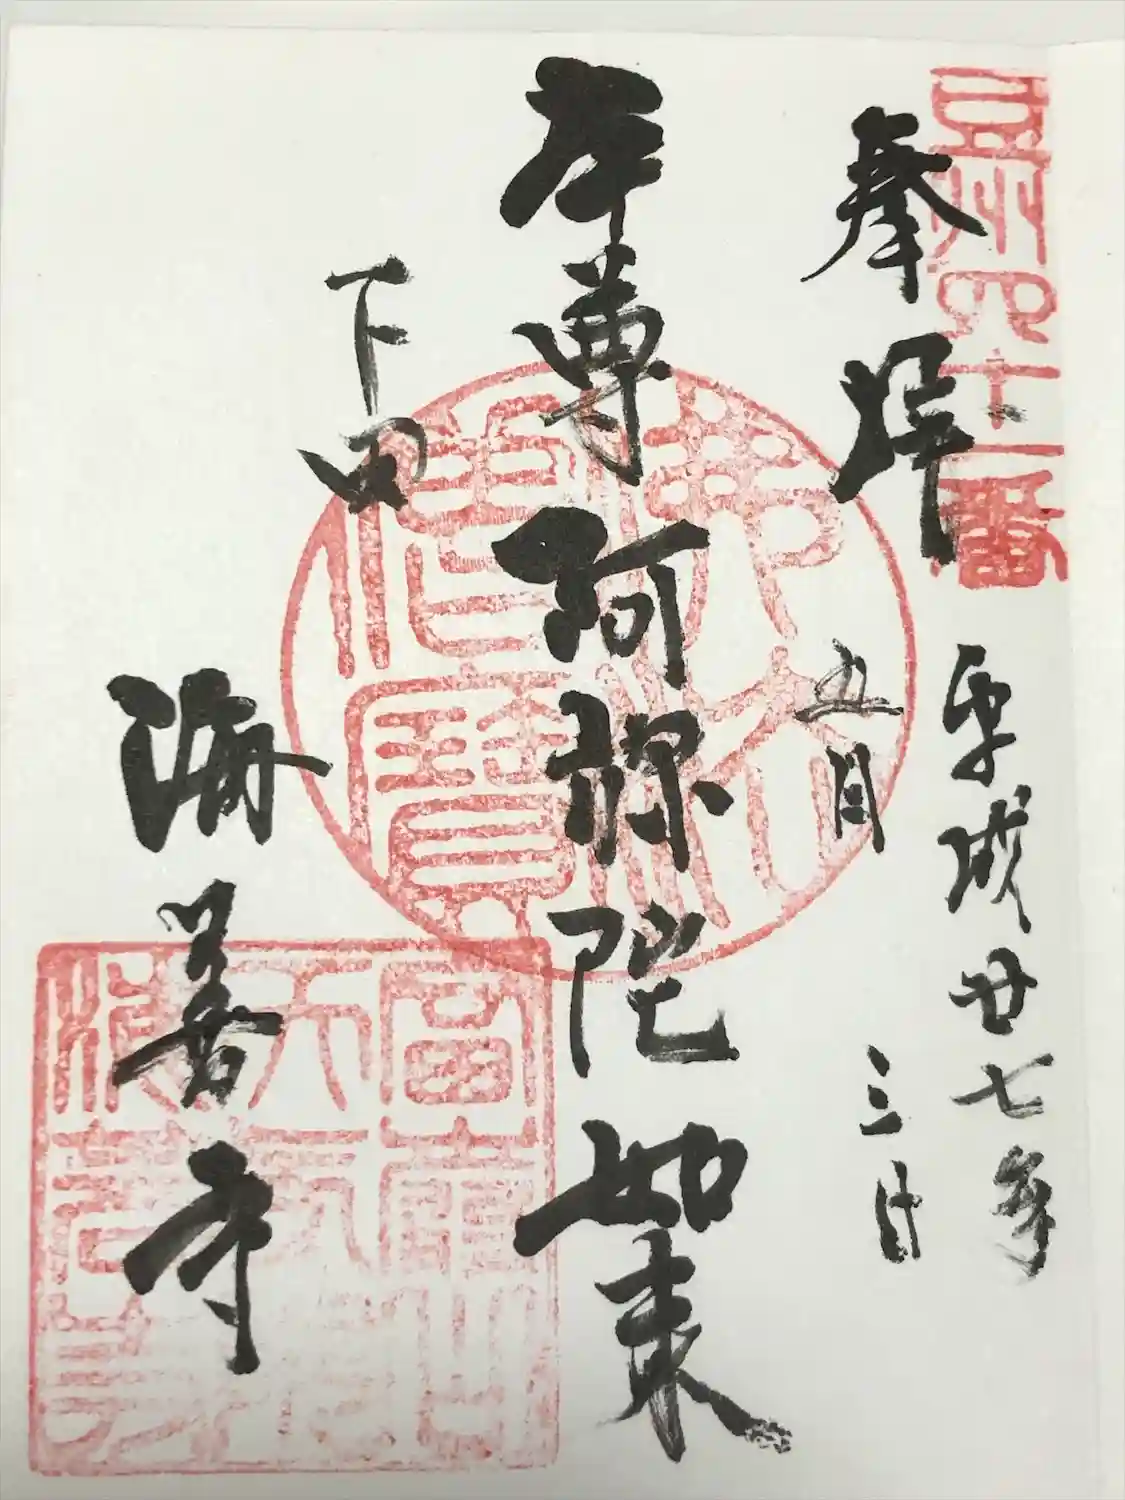 豆州四十一番
奉拝
平成廿七年
五月三日
本尊阿弥陀如来
下田
海善寺
佛法僧寶